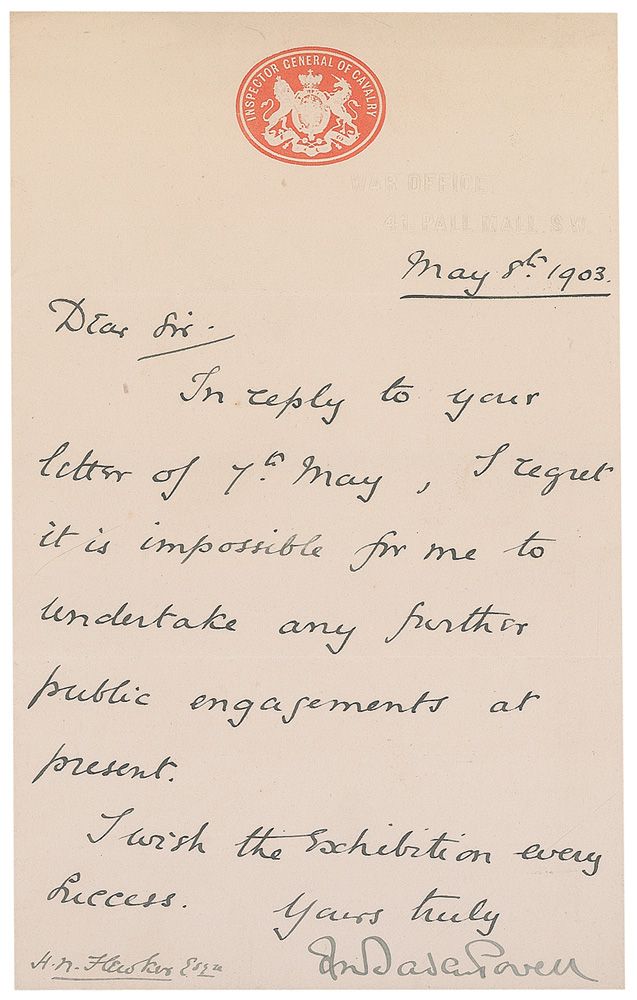 INSPECTOR GENERAL OF CAVALRY
WAR OFFICE,
41, PALL MALL, S.W.
May 8th. 1903.
Dear Sir.
In reply to your
letter of 7th. May, I regret
it is impossible for me to
undertake any further
public engagements at
present.
I wish the Exhibition every
success.
Yours truly
Baden Powell
H. N. Hawker Esqre